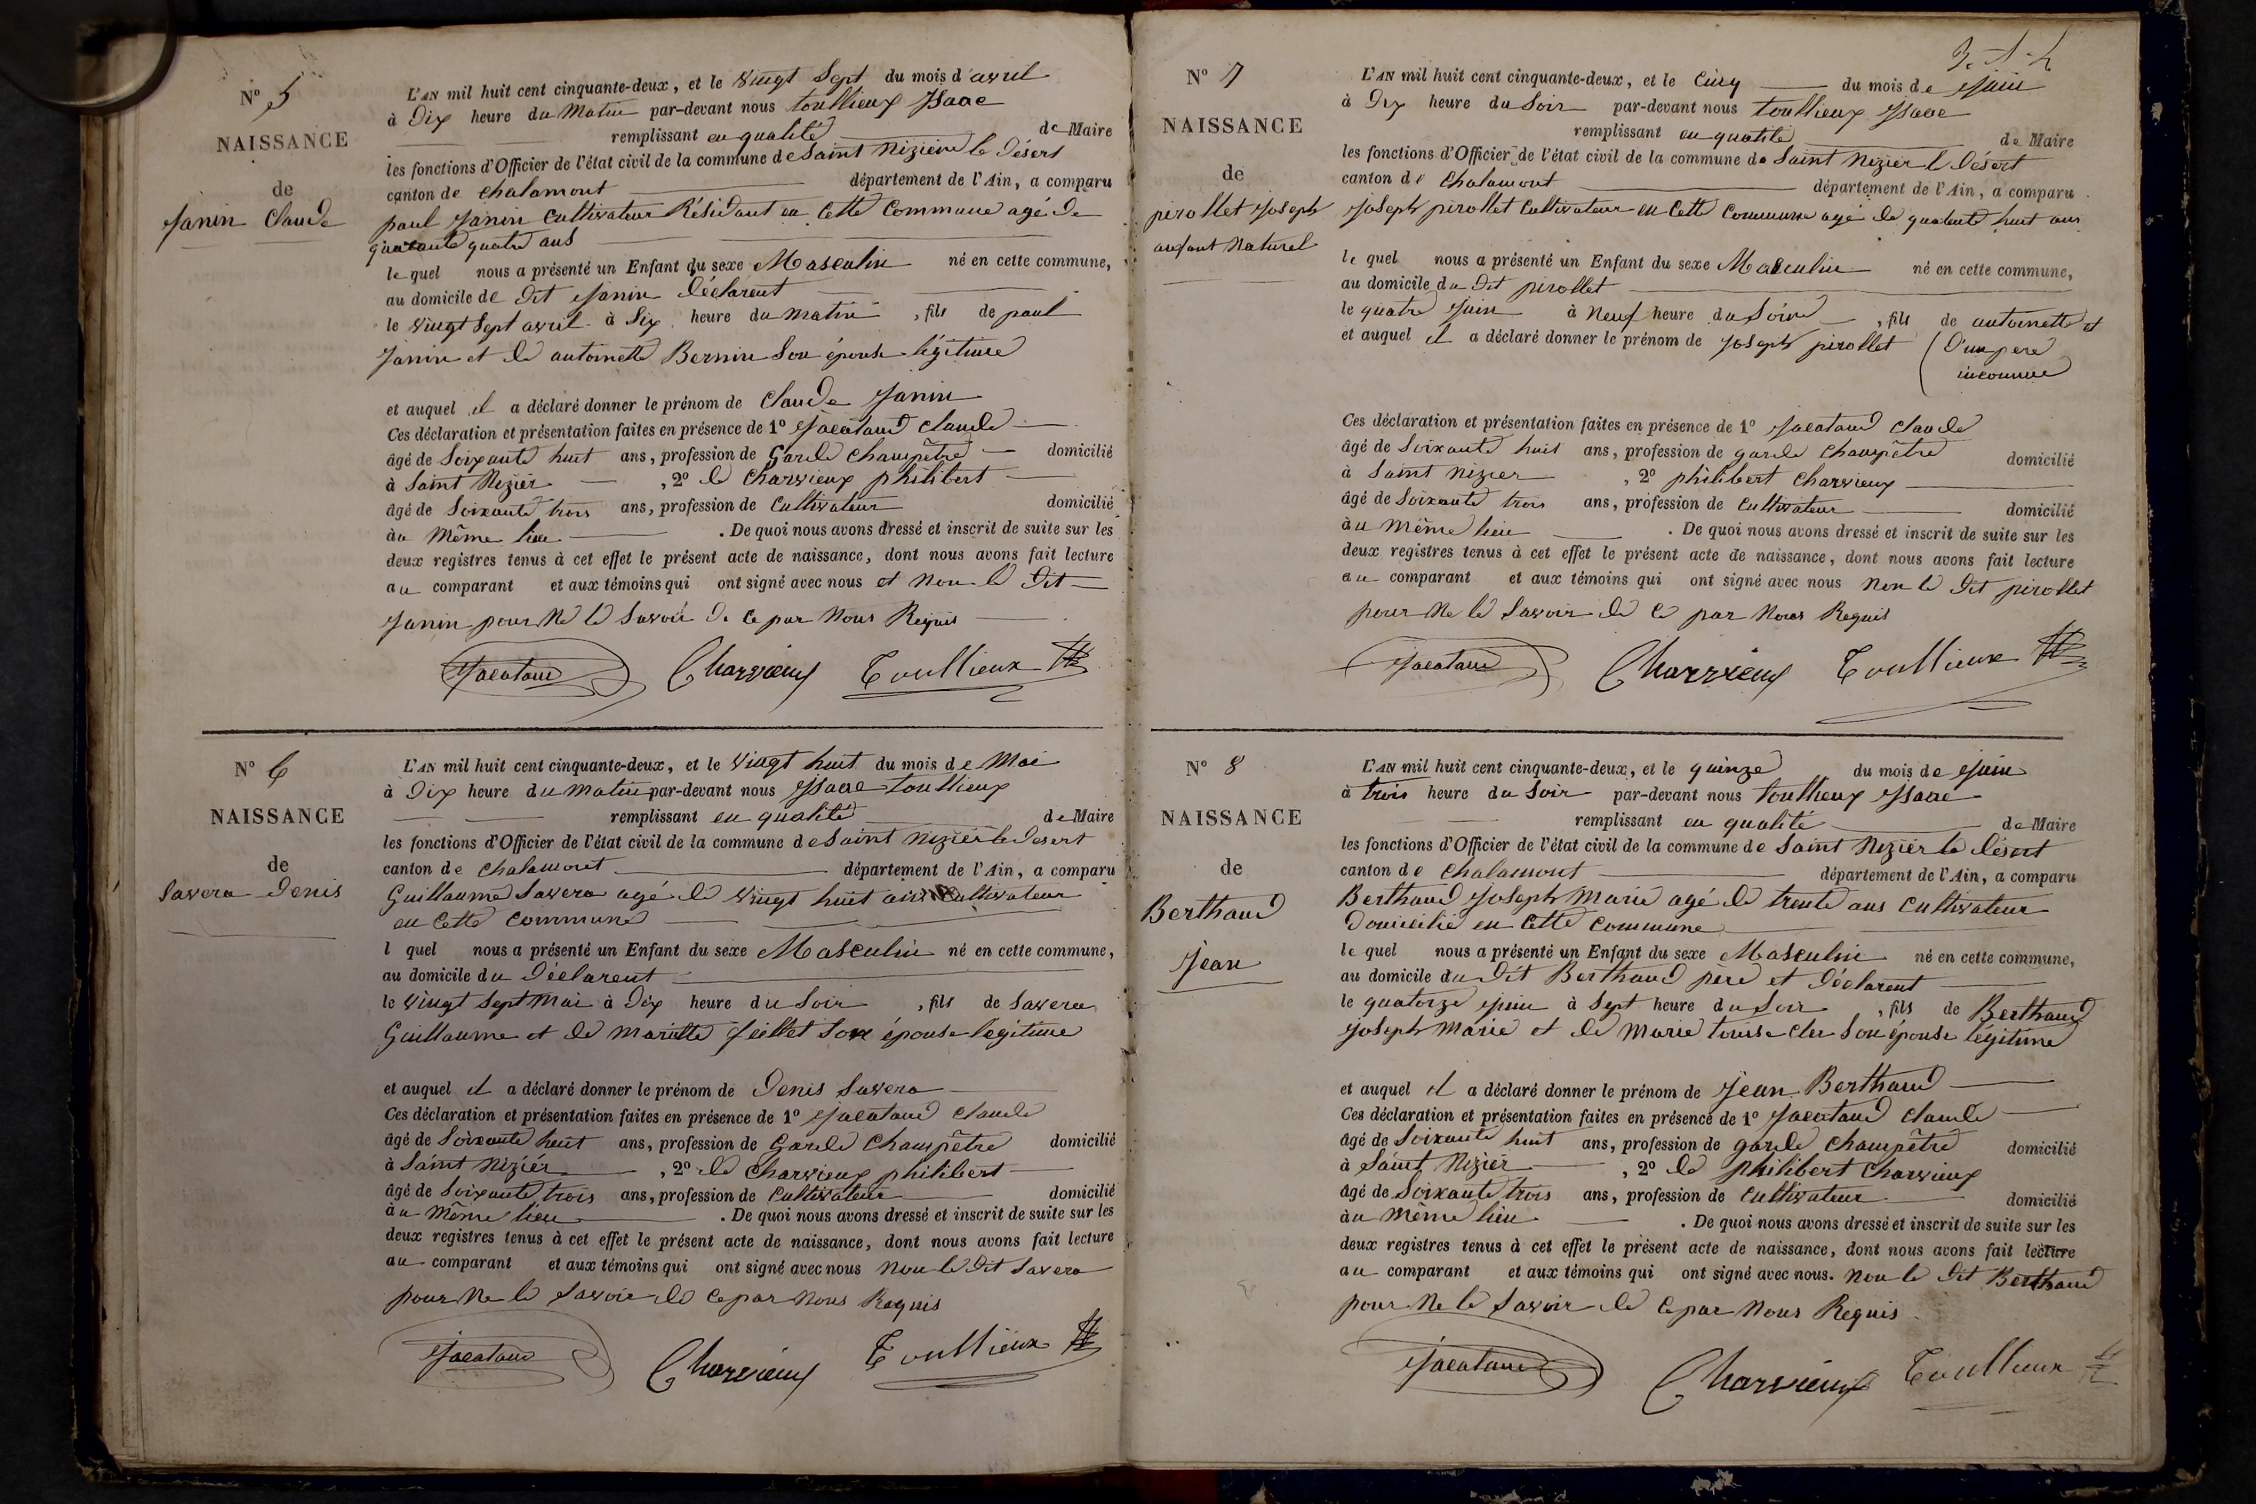 N° 5
NAISSANCE
de
Janin Claude
L'AN mil huit cent cinquante-deux, et le vingt Sept du mois d'avril
à Dix heure du Matin par-devant nous toullieux Ysaac
remplissant en qualité de Maire
les fonctions d'Officier de l'état civil de la commune de Saint Nizier le Désert
canton de chalamont département de l'Ain, a comparu
paul Janin cultivateur Résidant en Cette Commune agé de
quarante quatre ans
le quel nous a présenté un Enfant du sexe Masculin né en cette commune,
au domicile de Dit Janin Déclarent
le vingt Sept avril à Six heure du matin, fils de paul
Janin et de antoinette Bernin Son épouse légitime
et auquel il a déclaré donner le prénom de Claude Janin
Ces déclaration et présentation faites en présence de 1° Jacataud claude
âgé de Soixante huit ans, profession de Garde Champêtre domicilié
à Saint Nizier, 2° de Charvieux philibert
âgé de Soixante trois ans, profession de Cultivateur domicilié
à u même lieu. De quoi nous avons dressé et inscrit de suite sur les
deux registres tenus à cet effet le présent acte de naissance, dont nous avons fait lecture
au comparant et aux témoins qui ont signé avec nous et non le Dit
Janin pour Ne le Savoir de Ce par Nous Requis
Jacataud Charvieux Toullieux
N° 6
NAISSANCE
de
Savera Denis
L'AN mil huit cent cinquante-deux, et le vingt huit du mois de Mai
à Dix heure du matin par-devant nous Ysaac toullieux
remplissant en qualité de Maire
les fonctions d'Officier de l'état civil de la commune de Saint Nizier le Desert
canton de chalamont département de l'Ain, a comparu
Guillaume Savera agé de vingt huit ans Cultivateur
en Cette Commune
l quel nous a présenté un Enfant du sexe Masculin né en cette commune,
au domicile du Déclarent
le vingt Sept Mai à Dix heure du Soir, fils de Savera
Guillaume et de Mariette feillet Son épouse légitime
et auquel il a déclaré donner le prénom de Denis Savera
Ces déclaration et présentation faites en présence de 1° Jacataud Claude
âgé de Soixante huit ans, profession de Garde Champêtre domicilié
à Saint Nizier, 2° de Charvieux philibert
âgé de Soixante trois ans, profession de Cultivateur domicilié
à u même lieu. De quoi nous avons dressé et inscrit de suite sur les
deux registres tenus à cet effet le présent acte de naissance, dont nous avons fait lecture
au comparant et aux témoins qui ont signé avec nous Non le Dit Savera
pour Ne le Savoir de Ce par Nous Requis
Jacataud Charvieux Toullieux
N° 7
NAISSANCE
de
pirollet Joseph
anfant Naturel
L'AN mil huit cent cinquante-deux, et le Cinq du mois de Juin
à Dix heure du Soir par-devant nous toullieux Ysaac
remplissant en qualité de Maire
les fonctions d'Officier de l'état civil de la commune de Saint Nezier le Désert
canton de Chalamont département de l'Ain, a comparu
Joseph pirollet Cultivateur en Cette Commune agé de quarante huit ans
le quel nous a présenté un Enfant du sexe Masculin né en cette commune,
au domicile du Dit pirollet
le quatre Juin à Neuf heure du Soir, fils de antoinette et
et auquel il a déclaré donner le prénom de Joseph pirollet (D'un pere
inconnue
Ces déclaration et présentation faites en présence de 1° Jacataud Claude
âgé de Soixante huit ans, profession de garde Champêtre domicilié
à Saint Nizier, 2° philibert Charvieux
âgé de Soixante trois ans, profession de Cultivateur domicilié
à u même lieu. De quoi nous avons dressé et inscrit de suite sur les
deux registres tenus à cet effet le présent acte de naissance, dont nous avons fait lecture
au comparant et aux témoins qui ont signé avec nous Non le Dit pirollet
pour Ne le Savoir de Ce par Nous Requis
Jacataud Charvieux Toullieux
N° 8
NAISSANCE
de
Berthaud
Jean
L'AN mil huit cent cinquante-deux, et le quinze du mois de Juin
à trois heure du Soir par-devant nous toullieux Ysaac
remplissant en qualité de Maire
les fonctions d'Officier de l'état civil de la commune de Saint Nizier le Désert
canton de Chalamont département de l'Ain, a comparu
Berthaud Joseph Marie agé de trente ans Cultivateur
Domicilié en Cette Commune
le quel nous a présenté un Enfant du sexe Masculin né en cette commune,
au domicile du Dit Berthaud pere et Déclarent
le quatorze Juin à Sept heure du Soir, fils de Berthaud
Joseph Marie et de Marie Son épouse légitime
et auquel il a déclaré donner le prénom de Jean Berthaud
Ces déclaration et présentation faites en présence de 1° Jacataud Claude
âgé de Soixante huit ans, profession de garde Champêtre domicilié
à Saint Nizier, 2° de philibert Charvieux
âgé de Soixante trois ans, profession de Cultivateur domicilié
à u même lieu. De quoi nous avons dressé et inscrit de suite sur les
deux registres tenus à cet effet le présent acte de naissance, dont nous avons fait lecture
au comparant et aux témoins qui ont signé avec nous. Non le Dit Berthaud
pour Ne le Savoir de Ce par Nous Requis
Jacataud Charvieux Toullieux